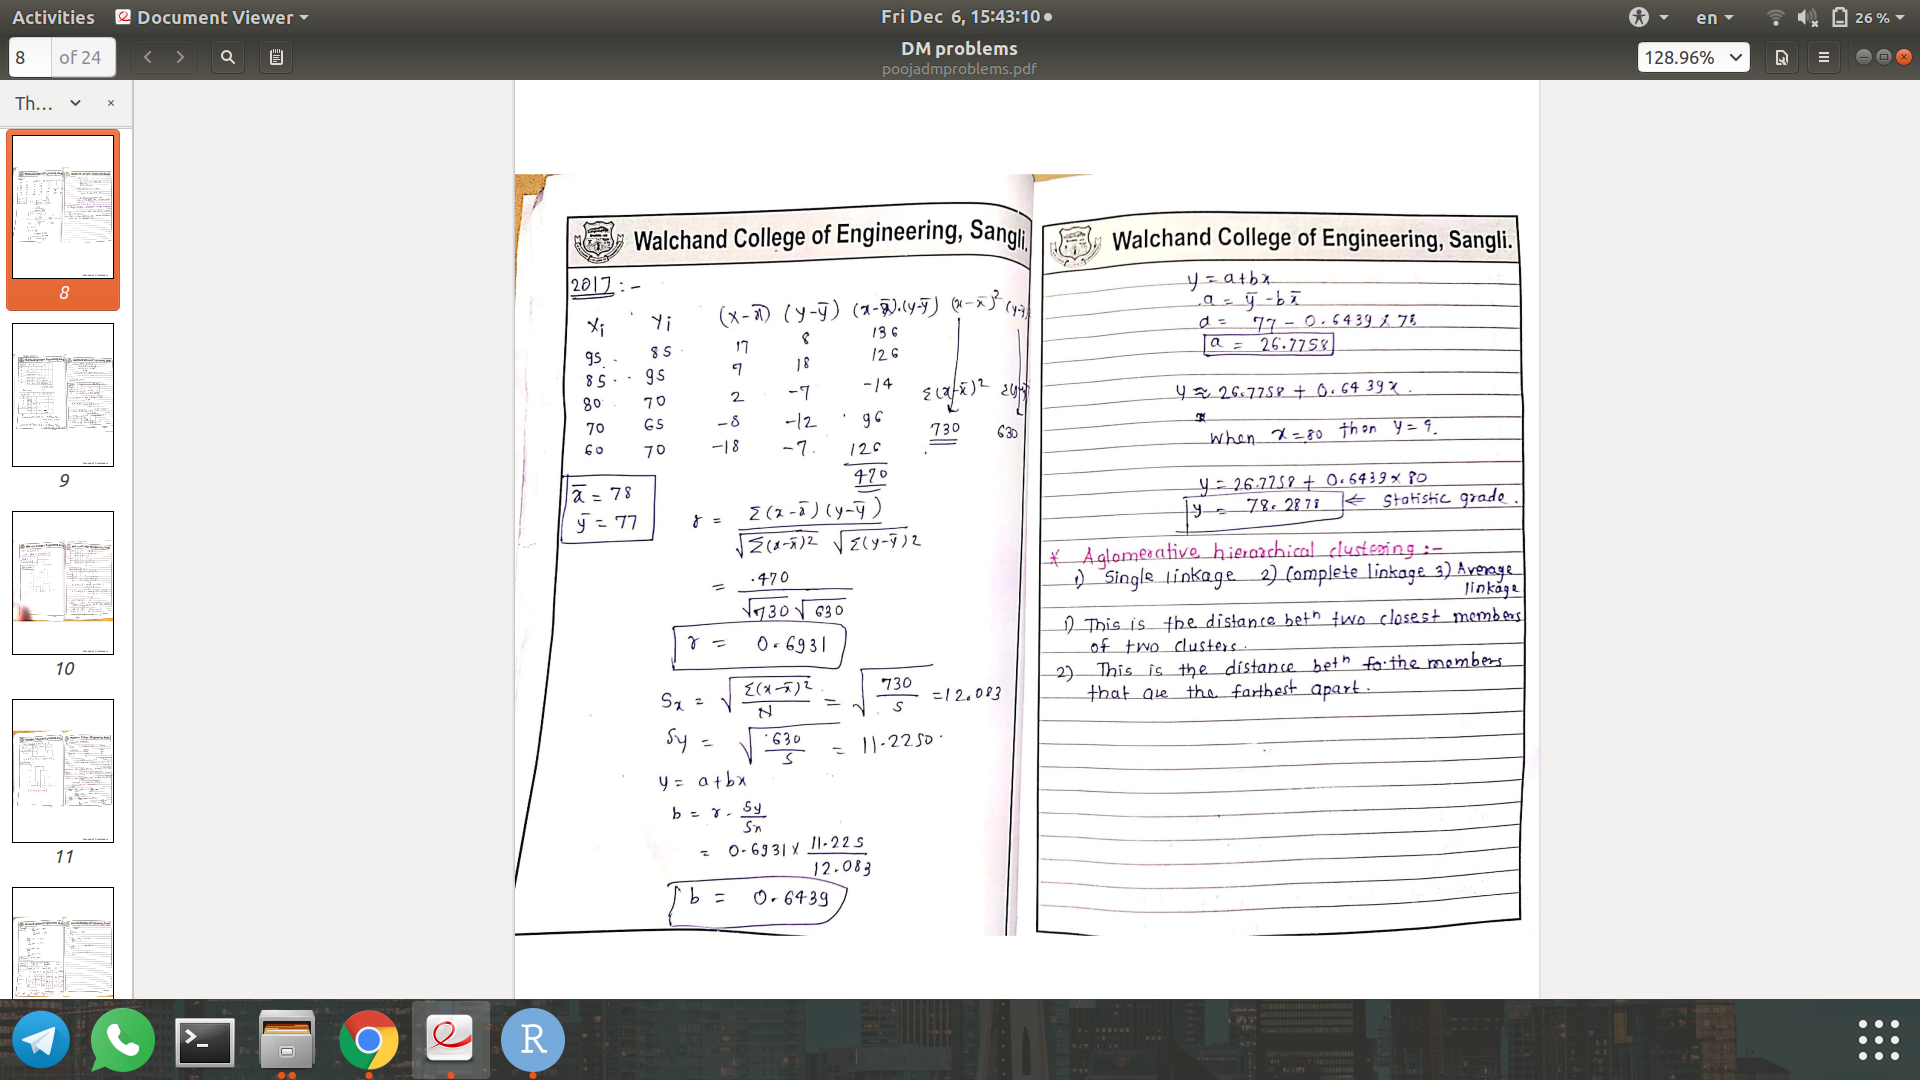 Activities Document Viewer Fri Dec 6, 15:43:10 en 26 %
8 of 24 DM problems 128.96%
poojadmproblems.pdf
Th...
8
9
10
11
Walchand College of Engineering, Sangli.
2017 :-
Xi Yi (x-x̄) (y-ȳ) (x-x̄).(y-ȳ) (x-x̄)²
95 85 17 8 136
85 95 7 18 126
80 70 2 -7 -14 Σ(x-x̄)²
70 65 -8 -12 96 730 630
60 70 -18 -7 126
470
x̄ = 78
ȳ = 77
r = Σ(x-x̄)(y-ȳ) / √Σ(x-x̄)2 √Σ(y-ȳ)2
= 470 / √730 √630
r = 0.6931
Sx = √Σ(x-x̄)2 / N = √730 / 5 = 12.083
Sy = √630 / 5 = 11.2250
y = a+bx
b = r. Sy / Sx
= 0.6931 x 11.225 / 12.083
b = 0.6439
Walchand College of Engineering, Sangli.
y = a+bx
a = ȳ - b x̄
a = 77 - 0.6439 x 78
a = 26.7758
y ≈ 26.7758 + 0.6439x.
When x=80 then y=?.
y = 26.7758 + 0.6439 x 80
y = 78.2878 ← Statistic grade.
* Aglomerative hierarchical clustering :-
1) Single linkage 2) Complete linkage 3) Average
linkage
1) This is the distance betn two closest members
of two clusters.
2) This is the distance betn the members
that are the farthest apart.
R